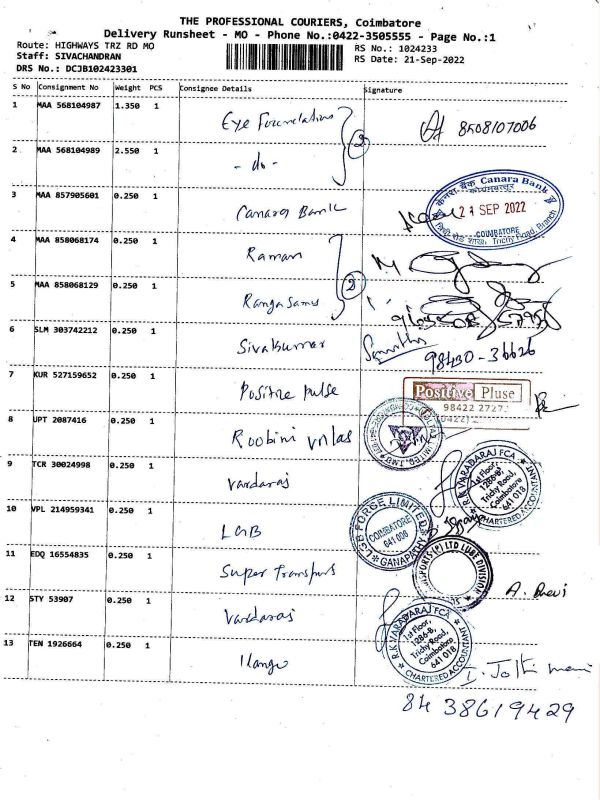 THE PROFESSIONAL COURIERS, Coimbatore
Delivery Runsheet - MO - Phone No.:0422-3505555 - Page No.:1
Route: HIGHWAYS TRZ RD MO RS No.: 1024233
Staff: SIVACHANDRAN RS Date: 21-Sep-2022
DRS No.: DCJB102423301
S No Consignment No Weight PCS Consignee Details Signature
1 MAA 568104987 1.350 1 Eye Foundation 2 8508107006
2 MAA 568104989 2.550 1 - do -
3 MAA 857905601 0.250 1 Canara Bank
केनरा बैंक Canara Bank
21 SEP 2022
COIMBATORE
Trichy Road Branch
4 MAA 858068174 0.250 1 Raman 2
5 MAA 858068129 0.250 1 Rangasamy
6 SLM 303742212 0.250 1 Sivakumar 98430-36626
7 KUR 527159652 0.250 1 Positive pulse
Positive Pluse
98422 2727
8 UPT 2087416 0.250 1 Roobini vilas
9 TCR 30024998 0.250 1 Vardaraj
R.K VARADARAJ FCA
1st Floor,
1286-B,
Trichy Road,
Coimbatore
641 018
CHARTERED ACCOUNTANT
10 VPL 214959341 0.250 1 LGB
L.G.B FORGE LIMITED
COIMBATORE
641 006
GANAPATHY
11 EDQ 16554835 0.250 1 Super Transports A. Devi
(P) LTD LUBE DIVISION
12 STY 53907 0.250 1 Vardaraj
R.K VARADARAJ FCA
1st Floor,
1286-B,
Trichy Road,
Coimbatore
641 018
CHARTERED ACCOUNTANT
13 TEN 1926664 0.250 1 Ilango I. Jothi mani
8438619429